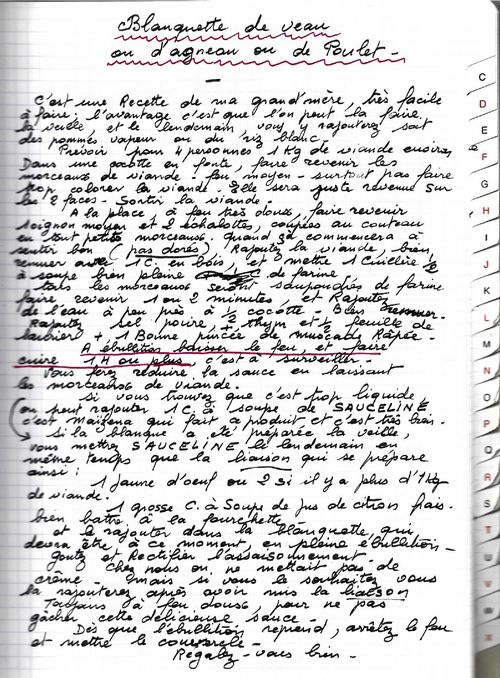 Blanquette de veau
ou d'agneau ou de Poulet -
C'est une Recette de ma grand'mère, très facile
à faire, l'avantage c'est que l'on peut la faire
la veille et le lendemain vous y rajouterez soit
des pommes vapeur ou du riz blanc.
Prévoir pour 4 personnes 1 Kg de viande environ
Dans une cocotte en fonte faire revenir les
morceaux de viande - feu moyen - surtout pas faire
trop colorer la viande. Elle sera juste revenue sur
les 2 faces - Sortir la viande.
A la place, à feu très doux, faire revenir
1 oignon moyen et 2 échalottes, coupées au couteau
en tout petits morceaux. Quand ça commencera à
sentir bon (pas dorés). Rajoutez la viande, bien
remuer avec 1 C. en bois, et mettre 1 Cuillère ½
à soupe bien pleine de farine -
tous les morceaux seront saupoudrés de farine
faire revenir 1 ou 2 minutes, et Rajouter
de l'eau à peu près à ½ cocotte - Bien remuer.
Rajouter sel, poivre, + thym et ½ feuille de
laurier + 1 Bonne pincée de muscade Rapée -
A ébullition baisser le feu, et faire
cuire 1H ou plus c'est à surveiller -
Vous ferez réduire la sauce en laissant
les morceaux de viande.
si vous trouvez que c'est trop liquide
on peut rajouter 1 C. à soupe de SAUCELINE
c'est Maïzena qui fait ce produit et c'est très bien.
si la blanque a été préparée la veille,
vous mettrez SAUCELINE le lendemain en
même temps que la liaison qui se prépare
ainsi :
1 Jaune d'oeuf ou 2 si il y a plus d'1 Kg
de viande.
1 grosse C. à Soupe de jus de citron frais.
bien battre à la fourchette -
et le rajouter dans la blanquette qui
devra être à ce moment, en pleine ébullition -
Goutez et Rectifier l'assaisonnement.
Chez nous on ne mettait pas de
crème - mais si vous le souhaitez vous
la rajouterez après avoir mis la liaison
Toujours à feu doux, pour ne pas
gâcher cette délicieuse sauce -
Dès que l'ébullition reprend, arrêtez le feu
et mettre le couvercle -
Régalez-vous bien -
C
D
E
F
G
H
I
J
K
L
M
N
O
P
Q
R
S
T